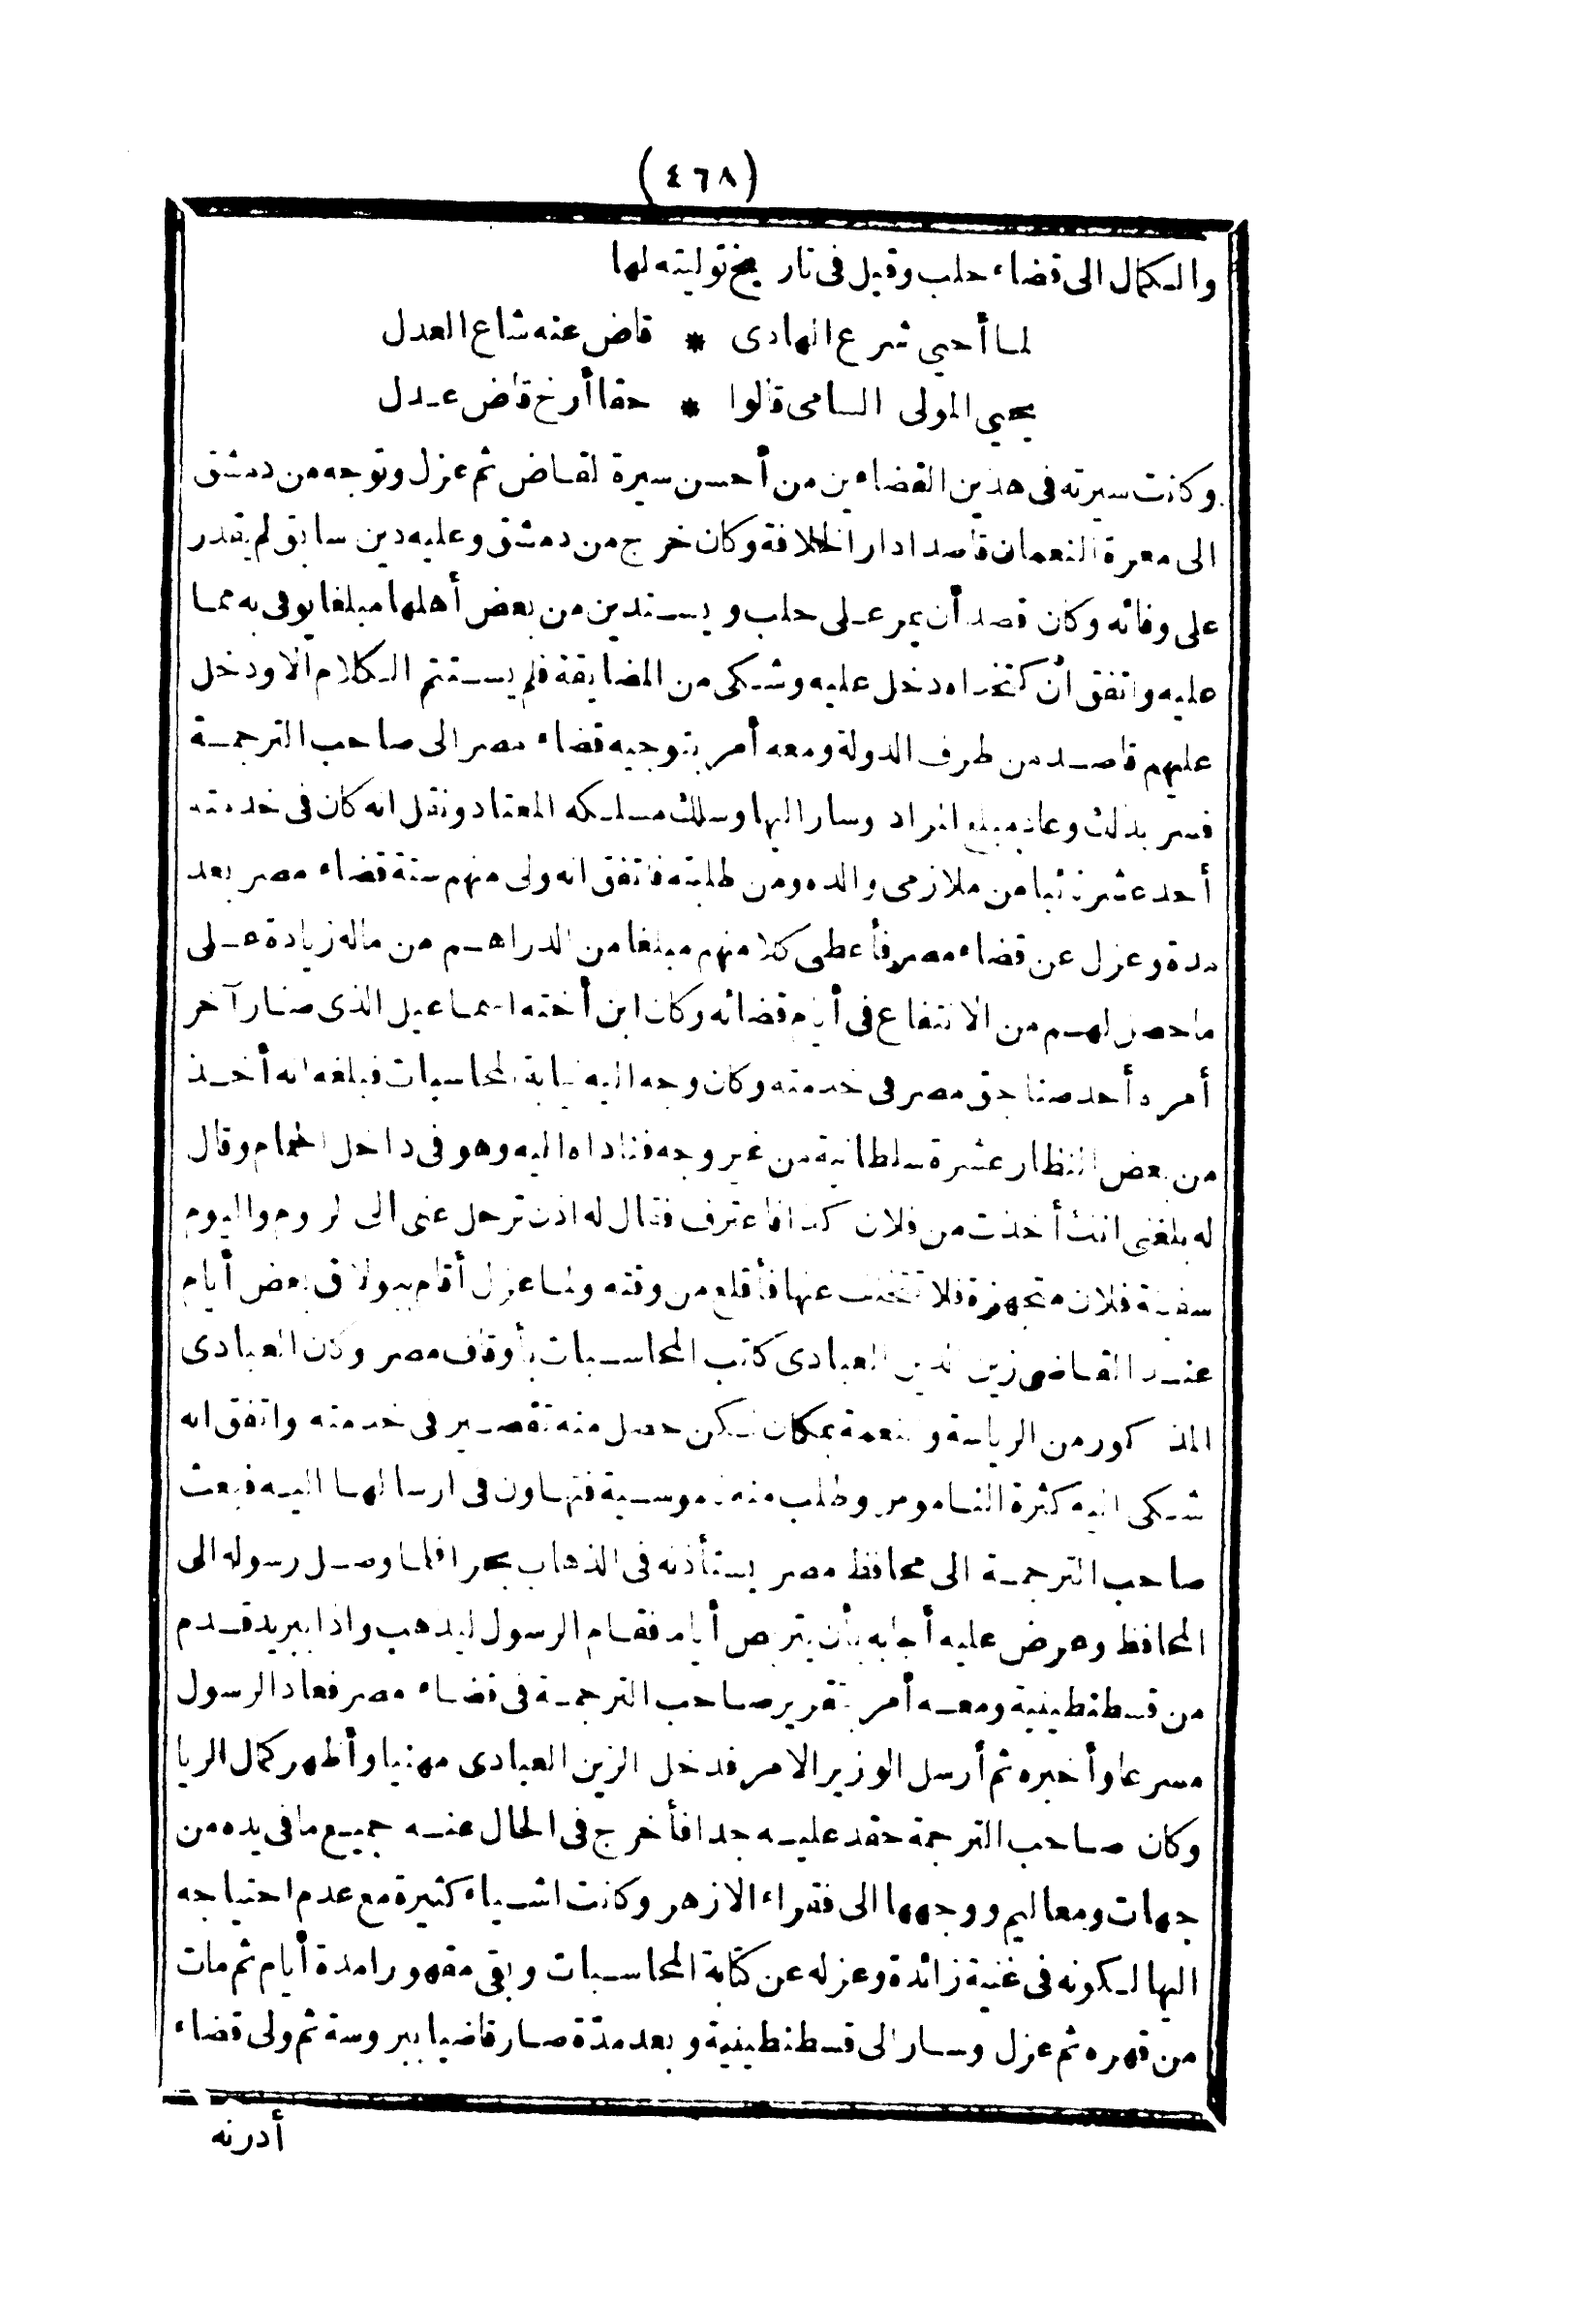 (٤٦٨)
والكمال الى قضاء حلب وقيل فى تاريخ توليته لها
لما أحيي شرع الهادى * قاض عنه شاع العدل
يحيي المولى السامى قالوا * حقا أرخ قاض عدل
وكانت سيرته فى هذين القضاءين من أحسن سيرة لقاض ثم عزل وتوجه من دمشق
الى معرة النعمان قاصدا دار الخلافة وكان خرج من دمشق وعليه دين سابق لم يقدر
على وفائه وكان قصد أن يمر على حلب ويستدين من بعض أهلها مبلغا يوفى به مما
عليه واتفق أن كتخداه دخل عليه وشكى من المضايقة فلم يستتم الكلام الا ودخل
عليهم قاصد من طرف الدولة ومعه أمر بتوجيه قضاء مصر الى صاحب الترجمة
فسر بذلك وعاد مبلغ المراد وسار اليها وسلك مسلكه المعتاد ونقل انه كان فى خدمته
أحد عشر نائبا من ملازمى والده ومن طلبته فاتفق انه ولى منهم ستة قضاء مصر بعد
مدة وعزل عن قضاء مصر فأعطى كلا منهم مبلغا من الدراهم من ماله زيادة على
ما حصل لهم من الانتفاع فى أيام قضائه وكان ابن أخته اسماعيل الذى صار آخر
أمره أحد صناجق مصر فى خدمته وكان وجه اليه نيابة المحاسبات فبلغه انه أخذ
من بعض النظار عشرة سلطانية من غير وجه فناداه اليه وهو فى داخل الحمام وقال
له بلغنى انك أخذت من فلان كذا فاعترف فقال له اذن ترحل عنى الى الروم واليوم
سفينة فلان متجهزة فلا تتخلف عنها فأقلع من وقته ولما عزل أقام ببولاق بعض أيام
عند القاضى زين الدين العبادى كاتب المحاسبات بأوقاف مصر وكان العبادى
المذكور من الرياسة والنعمة بمكان لكن حصل منه تقصير فى خدمته واتفق انه
شكى اليه كثرة الناموس وطلب منه ناموسية فتهاون فى ارسالها اليه فبعث
صاحب الترجمة الى محافظ مصر يستأذنه فى الذهاب بحرا فلما وصل رسوله الى
المحافظ وعرض عليه أجابه بأن يتربص أياما فقام الرسول ليذهب واذا ببريد قدم
من قسطنطينية ومعه أمر بتقرير صاحب الترجمة فى قضاء مصر فعاد الرسول
مسرعا وأخبره ثم أرسل الوزير الامر فدخل الزين العبادى مهنيا وأظهر كمال الريا
وكان صاحب الترجمة حقد عليه جدا فأخرج فى الحال عنه جميع ما فى يده من
جهات ومعاليم ووجهها الى فقراء الازهر وكانت اشياء كثيرة مع عدم احتياجه
اليها لكونه فى غنية زائدة وعزله عن كتابة المحاسبات وبقى مقهورا مدة أيام ثم مات
من قهره ثم عزل وسار الى قسطنطينية وبعد مدة صار قاضيا ببروسة ثم ولى قضاء
أدرنه